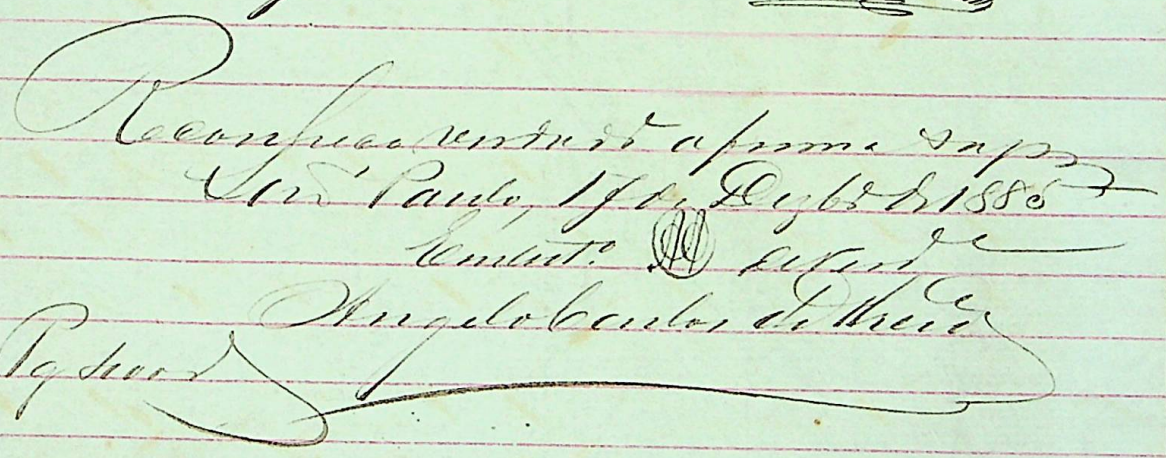 Reconheço verdadrª a firma supra
São Paulo, 17 de Dezbrº de 1885
Em testº da verdᵉ
Angelo Carlos de Abreu
Pg